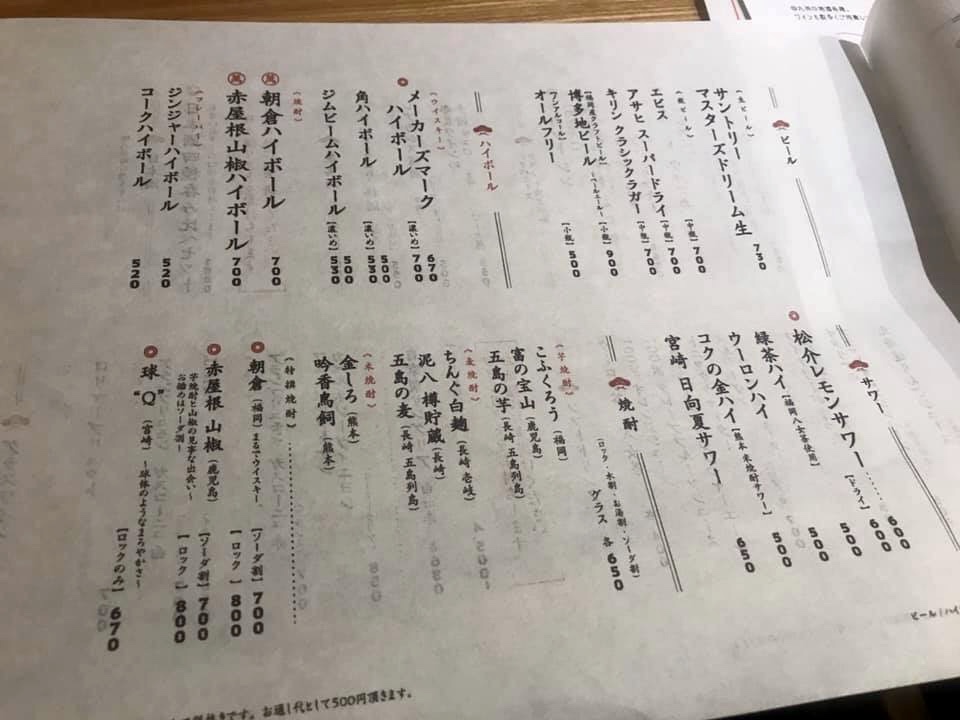 ビール
(生ビール)
サントリー
マスターズドリーム生 730
(瓶ビール)
エビス [中瓶] 700
アサヒ スーパードライ [中瓶] 700
キリン クラシックラガー [中瓶] 700
(福岡産クラフトビール)
博多地ビール ~ペールエール~ [小瓶] 900
(ノンアルコール)
オールフリー [小瓶] 500
ハイボール
(ウイスキー)
メーカーズマーク
ハイボール 670
[濃いめ] 700
角ハイボール 500
[濃いめ] 530
ジムビームハイボール 500
[濃いめ] 530
(焼酎)
朝倉ハイボール 700
赤屋根山椒ハイボール 700
ジンジャーハイボール 520
コークハイボール 520
サワー
松介レモンサワー 600
[ドライ] 600
緑茶ハイ [福岡八女茶使用] 500
ウーロンハイ 500
コクの金ハイ [熊本 米焼酎サワー] 500
宮崎 日向夏サワー 650
焼酎
(ロック・水割・お湯割・ソーダ割)
グラス 各650
(芋焼酎)
こふくろう (福岡)
富の宝山 (鹿児島)
五島の芋 (長崎 五島列島)
(麦焼酎)
ちんぐ白麹 (長崎 壱岐)
泥八樽貯蔵 (長崎)
五島の麦 (長崎 五島列島)
(米焼酎)
金しろ (熊本)
吟香鳥飼 (熊本)
(特撰焼酎)
朝倉 (福岡) まるでウイスキー、
[ソーダ割] 700
[ロック] 800
赤屋根 山椒 (鹿児島)
芋焼酎と山椒の見事な出会い~
お勧めはソーダ割~
[ソーダ割] 700
[ロック] 800
球 "Q" (宮崎) ~球体のようなまろやかさ~
[ロックのみ] 670
お通し代として500円頂きます。